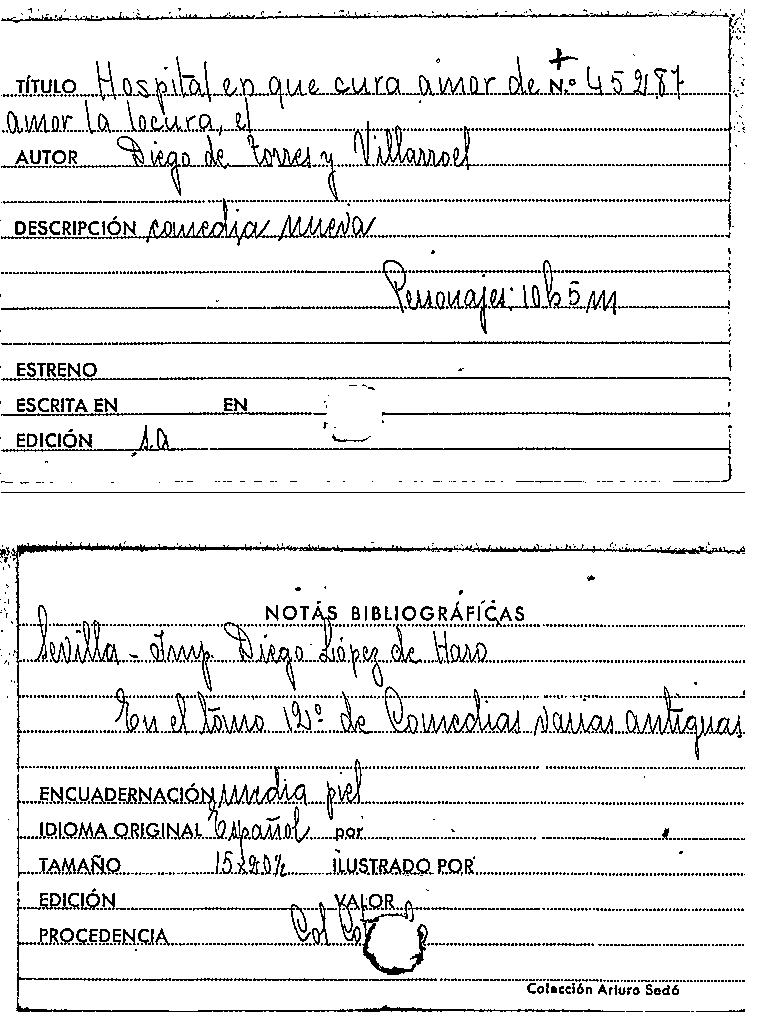 TÍTULO Hospital en que cura amor de N.º 45287
amor la locura, el
AUTOR Diego de Torres y Villarroel
DESCRIPCIÓN comedia nueva
Personajes: 10 h 5 m
ESTRENO
ESCRITA EN EN
EDICIÓN s.a
NOTAS BIBLIOGRÁFICAS
Sevilla - Imp. Diego López de Haro
En el tomo 12º de Comedias varias antiguas
ENCUADERNACIÓN media piel
IDIOMA ORIGINAL Español por
TAMAÑO 15x20½ ILUSTRADO POR
EDICIÓN VALOR
PROCEDENCIA Col
Colección Arturo Sedó